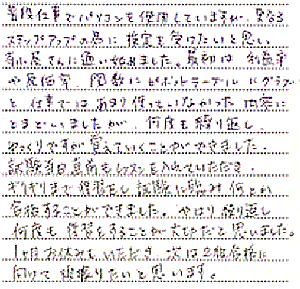 普段仕事でパソコンを使用していますが、更なる
ステップアップの為に検定を受けたいと思い
さんに通い始めました。最初は
や 、関数にピボットテーブル、グラフ
と、仕事ではあまり使っていなかった内容に
とまどいましたが、何度も繰り返し、
ゆっくりですが覚えていくことができました。
試験 直前もレッスンを入れていただき、
ぎりぎりまで復習し試験に臨み何とか
合格することができました。やはり繰り返し
何度も復習をすることが大切だと思いました。
1ヶ月お休みをいただき、次は2級合格に
向けて頑張りたいと思います。